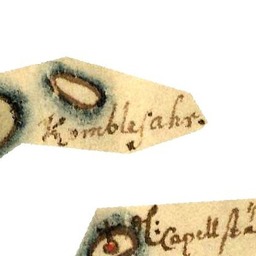 Komblesahr.
Capellstä